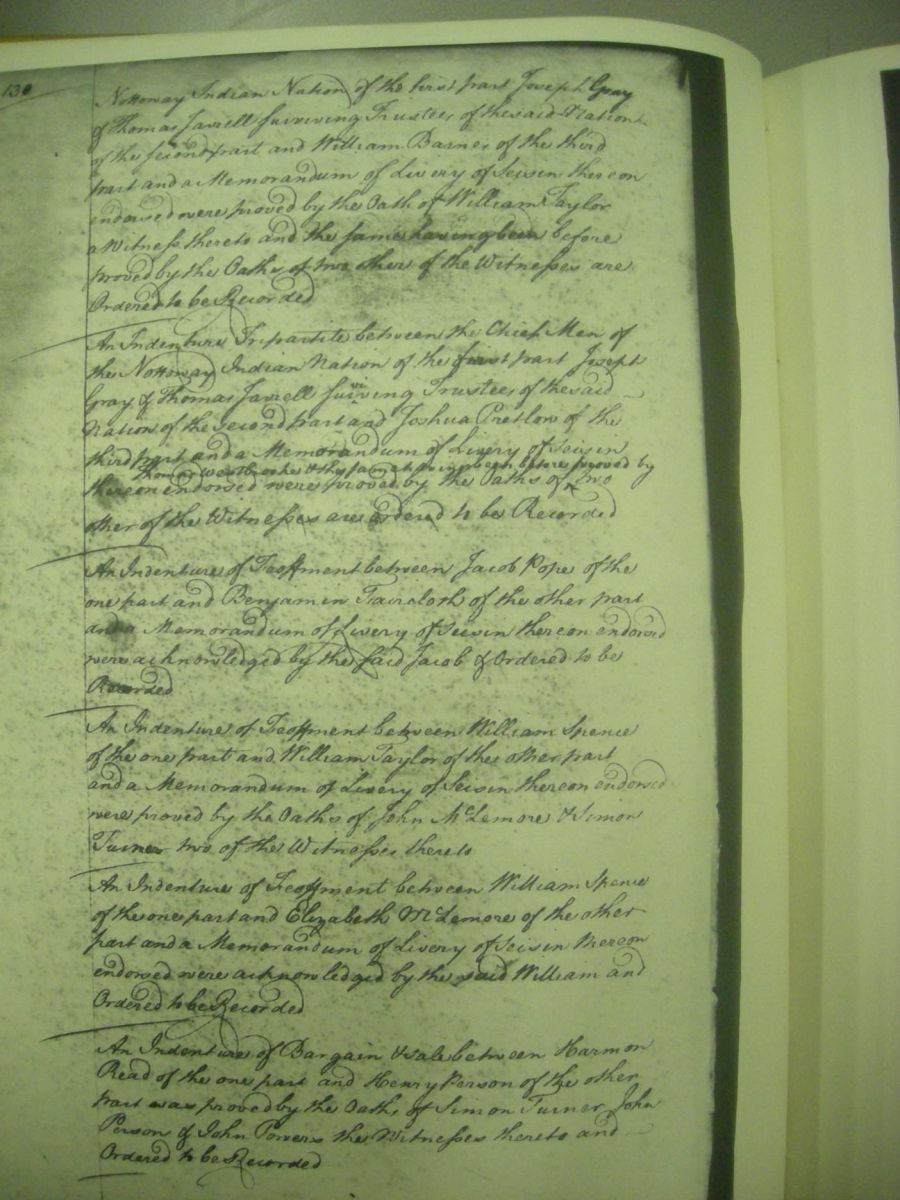 130
Nottoway Indian Nation of the first part Joseph Gray
& Thomas Jarrell Surviving Trustees of the said Nation
of the second part and William Barnes of the third
part and a Memorandum of Livery of Seisin thereon
endorsed were proved by the Oath of William Taylor
a Witness thereto and the same having been before
proved by the Oaths of two other of the Witnesses are
Ordered to be Recorded
An Indenture Tripartite between the Chief Men of
the Nottoway Indian Nation of the first part Joseph
Gray & Thomas Jarrell surviving Trustees of the said
Nation of the second part and Joshua Pretlow of the
third part and a Memorandum of Livery of Seisin
Thomas Westbrooke & the same having been before proved by
thereon endorsed were proved by the Oaths of two
other of the Witnesses are ordered to be Recorded
An Indenture of Feoffment between Jacob Pope of the
one part and Benjamin Faircloth of the other part
and a Memorandum of Livery of Seisin thereon endorsed
were acknowledged by the said Jacob & Ordered to be
Recorded
An Indenture of Feoffment between William Spence
of the one part and William Taylor of the other part
and a Memorandum of Livery of Seisin thereon endorsed
were proved by the Oaths of John McLemore & Simon
Turner two of the Witnesses thereto
An Indenture of Feoffment between William Spence
of the one part and Elizabeth McLemore of the other
part and a Memorandum of Livery of Seisin thereon
endorsed were acknowledged by the said William and
Ordered to be Recorded
An Indenture of Bargain & sale between Harmon
Read of the one part and Henry Person of the other
part was proved by the Oaths of Simon Turner John
Person & John Powers the Witnesses thereto and
Ordered to be Recorded